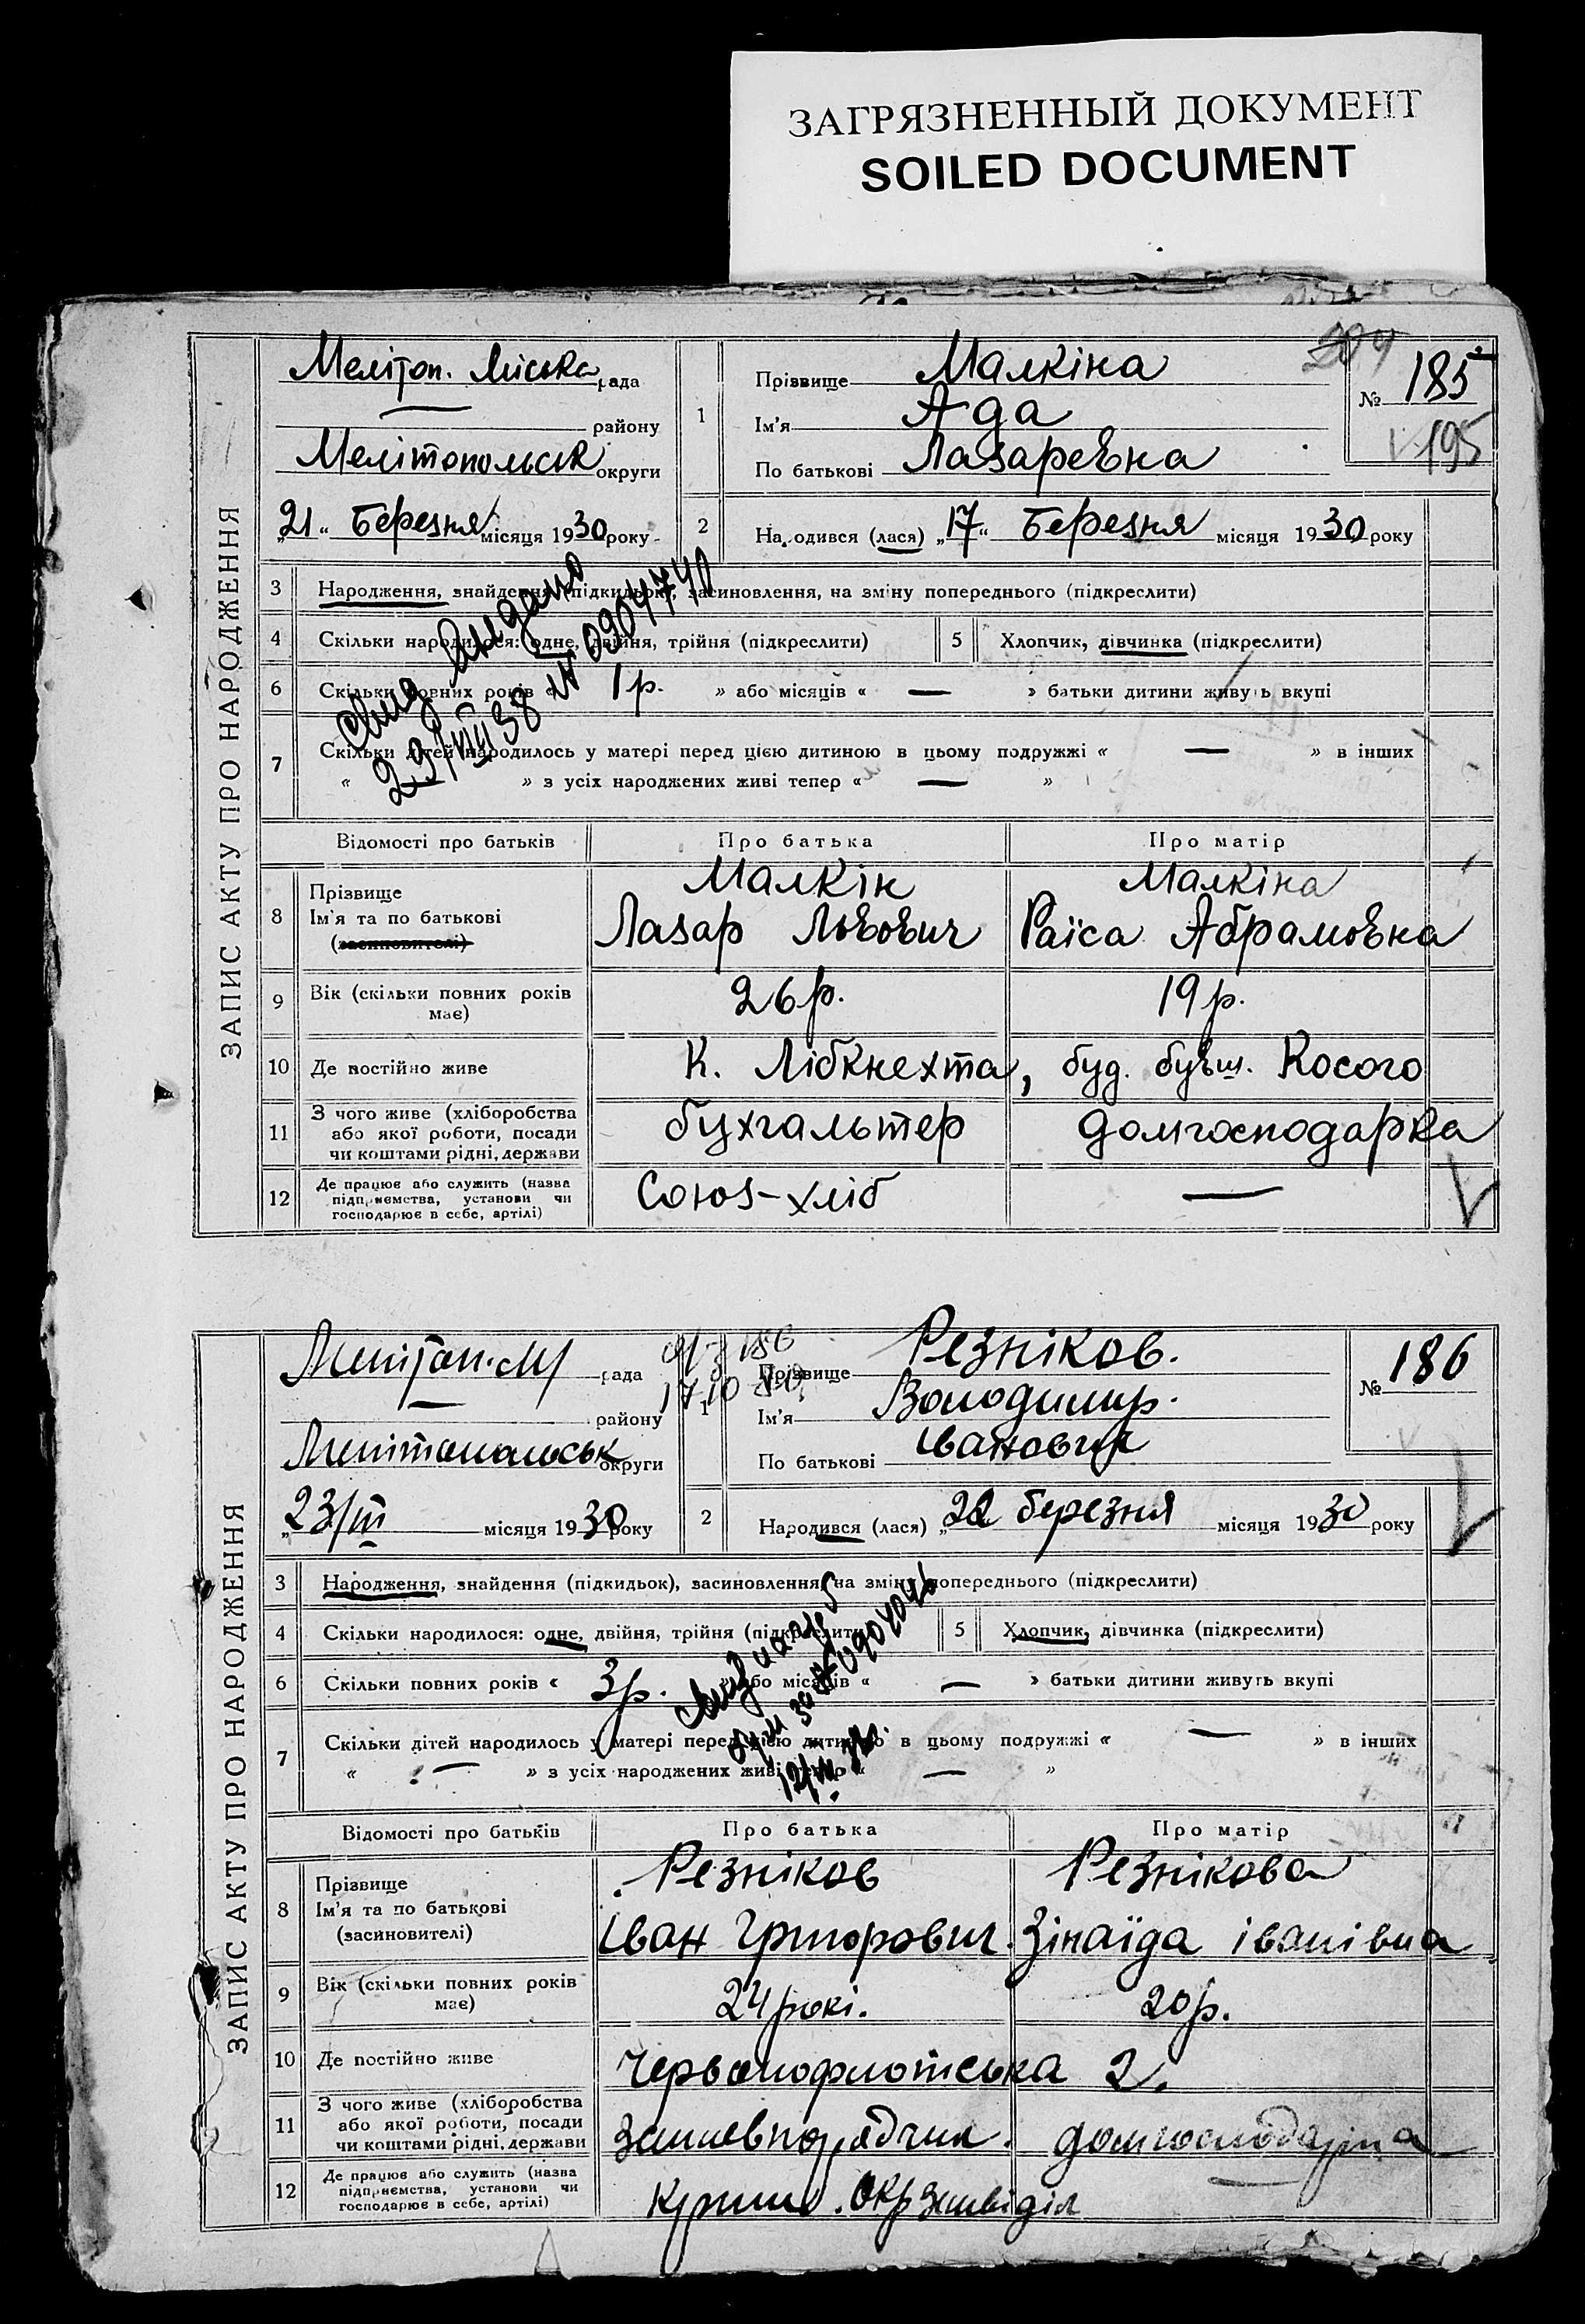 ЗАГРЯЗНЕННЫЙ ДОКУМЕНТ
SOILED DOCUMENT
ЗАПИС АКТУ ПРО НАРОДЖЕННЯ
Меліпоп. Міська рада
району
Мелітопольськ округи
„21“ Березня місяця 1930 року
1
Прізвище Малкіна
Ім'я Ада
По батькові Лазаревна
204
№ 185
195
2
Народився (лася) „17“ Березня місяця 1930 року
3 Народження, знайдення (підкидьок), засиновлення, на зміну попереднього (підкреслити)
4 Скільки народилося: одне, двійня, трійня (підкреслити)
5 Хлопчик, дівчинка (підкреслити)
6 Скільки повних років « 1 р. » або місяців « — » батьки дитини живуть вкупі
7 Скільки дітей народилось у матері перед цією дитиною в цьому подружжі « — » в інших
« » з усіх народжених живі тепер « — »
23/VII 38 № 0904740
Відомості про батьків
Про батька
Про матір
8 Прізвище
Ім'я та по батькові
(засиновителі)
Малкін
Лазар Львович
Малкіна
Раїса Абрамовна
9 Вік (скільки повних років має)
26 р.
19 р.
10 Де постійно живе
К. Лібкнехта, буд. бувш. Косого
11 З чого живе (хліборобства
або якої роботи, посади
чи коштами рідні, держави
бухгальтер
домгосподарка
12 Де працює або служить (назва
підприємства, установи чи
господарює в себе, артілі)
Союз-хліб
—
ЗАПИС АКТУ ПРО НАРОДЖЕННЯ
Меліпоп. М/ рада
району
Мелітопольськ округи
„23/III місяця 1930 року
186
1
Прізвище Резніков.
Ім'я Володимир.
По батькові Івановик
№ 186
2
Народився (лася) „22 березня місяця 1930 року
3 Народження, знайдення (підкидьок), засиновлення, на зміну попереднього (підкреслити)
4 Скільки народилося: одне, двійня, трійня (підкреслити)
5 Хлопчик, дівчинка (підкреслити)
6 Скільки повних років « 3 р. » або місяців « — » батьки дитини живуть вкупі
7 Скільки дітей народилось у матері перед цією дитиною в цьому подружжі « — » в інших
« — » з усіх народжених живі тепер « — »
Відомості про батьків
Про батька
Про матір
8 Прізвище
Ім'я та по батькові
(засиновителі)
Резніков
Іван Григорович.
Резнікова
Зінаїда Іванівна
9 Вік (скільки повних років має)
24 рокі.
20 р.
10 Де постійно живе
Червонофлотська 2.
11 З чого живе (хліборобства
або якої роботи, посади
чи коштами рідні, держави
Землевпорядчик.
домгосподарка
12 Де працює або служить (назва
підприємства, установи чи
господарює в себе, артілі)
Окрземвідділ